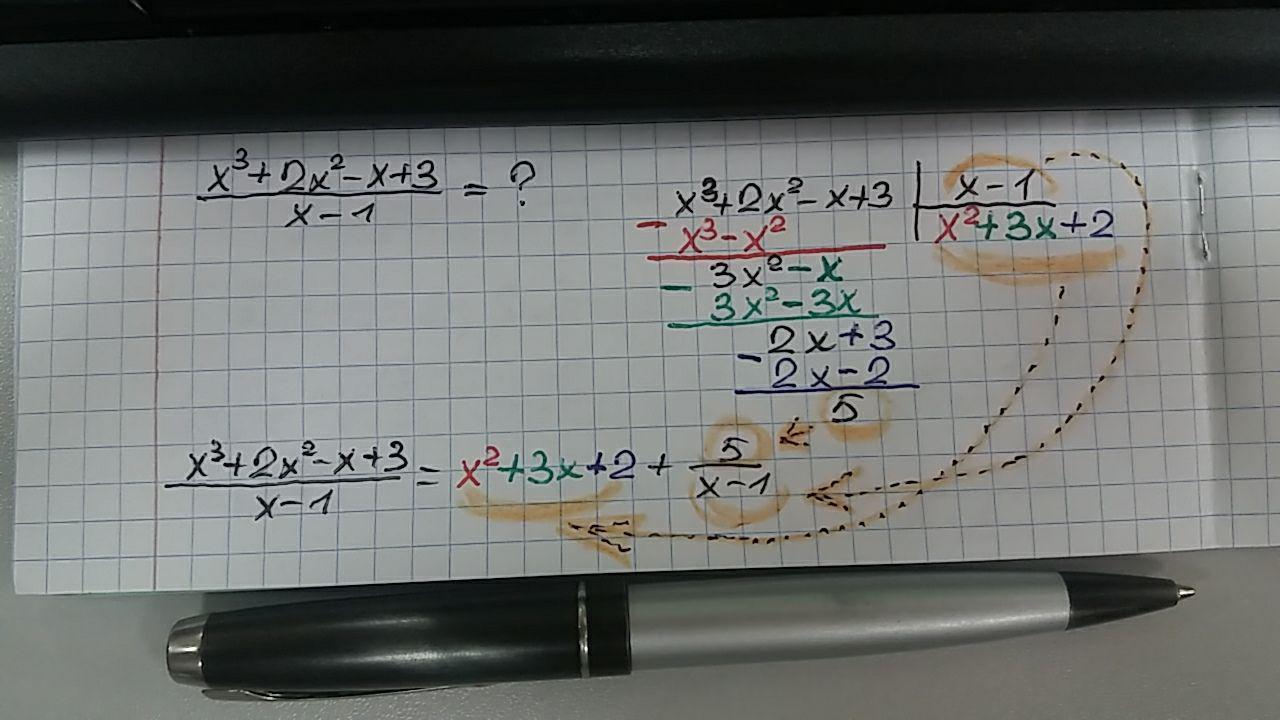 x³+2x²-x+3
x-1
= ?
x³+2x²-x+3 | x-1
- x³-x²
x²+3x+2
3x²-x
- 3x²-3x
2x+3
- 2x-2
5
x³+2x²-x+3
x-1
= x²+3x+2 + 5
x-1